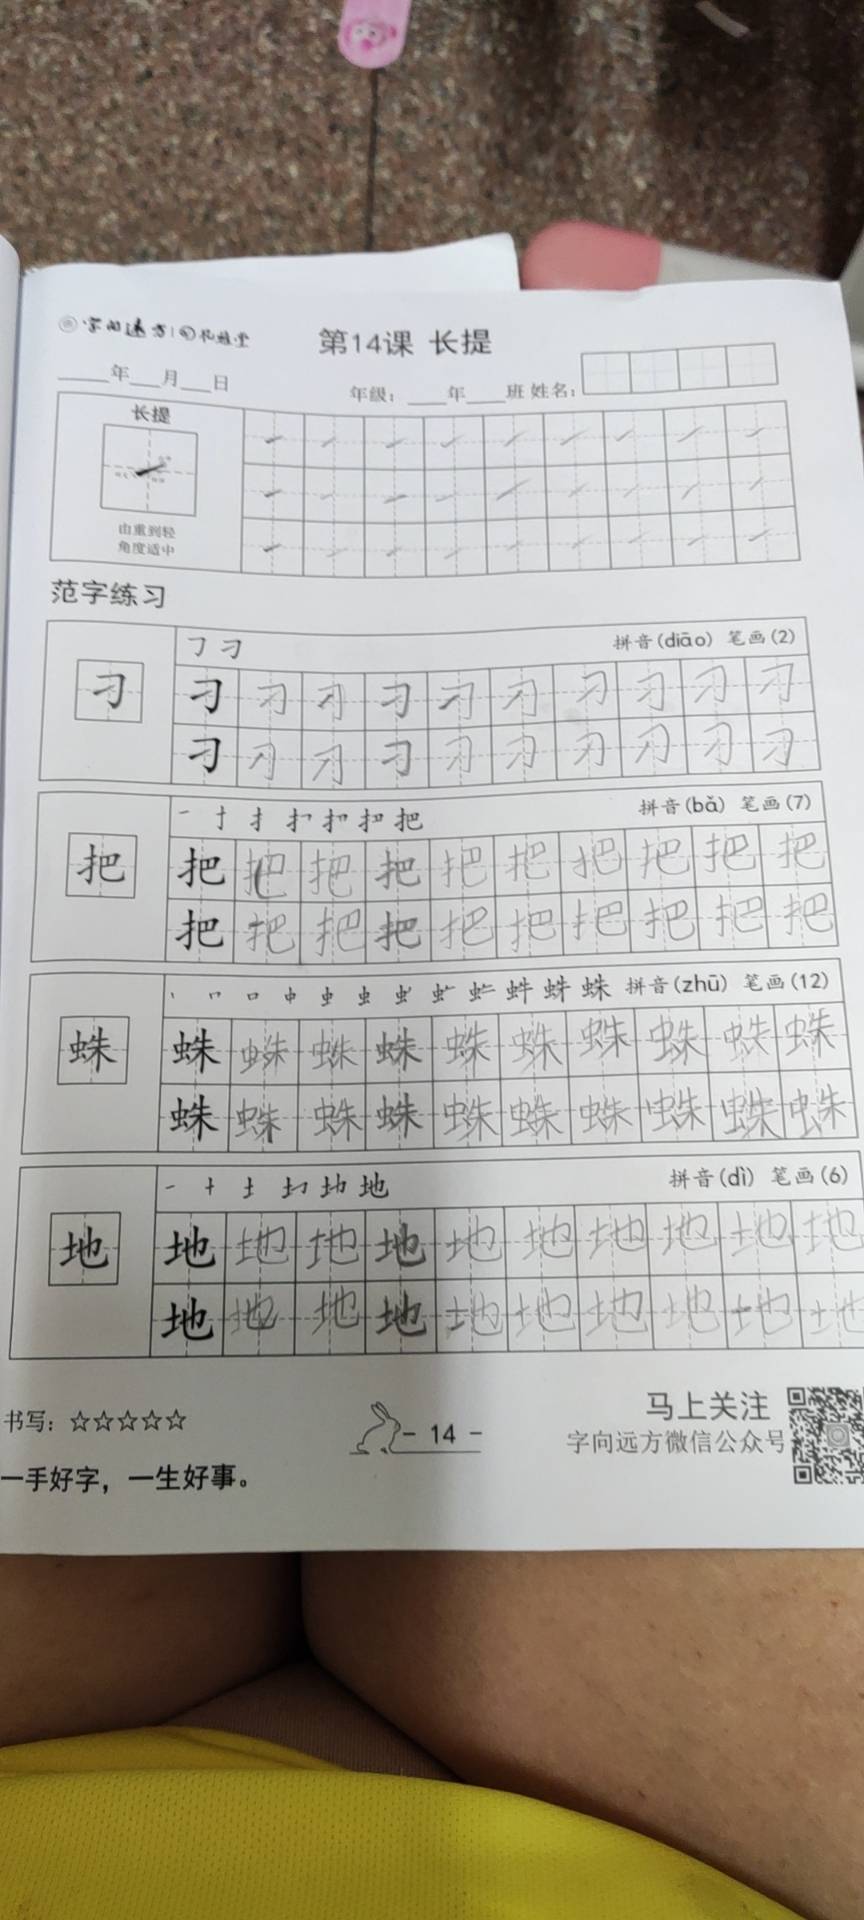 字向远方
第14课 长提
____年___月___日 年级：____年____班 姓名：
长提
由重到轻
角度适中
范字练习
㇆ 刁 拼音(diāo) 笔画(2)
刁 刁 刁 刁 刁 刁 刁 刁 刁 刁 刁
刁 刁 刁 刁 刁 刁 刁 刁 刁 刁
拼音(bǎ) 笔画(7)
把 把 把 把 把 把 把 把 把 把 把
把 把 把 把 把 把 把 把 把 把
拼音(zhū) 笔画(12)
蛛 蛛 蛛 蛛 蛛 蛛 蛛 蛛 蛛 蛛 蛛
蛛 蛛 蛛 蛛 蛛 蛛 蛛 蛛 蛛 蛛
拼音(dì) 笔画(6)
地 地 地 地 地 地 地 地 地 地 地
地 地 地 地 地 地 地 地 地 地
书写：☆☆☆☆☆
- 14 -
马上关注
字向远方微信公众号
一手好字，一生好事。